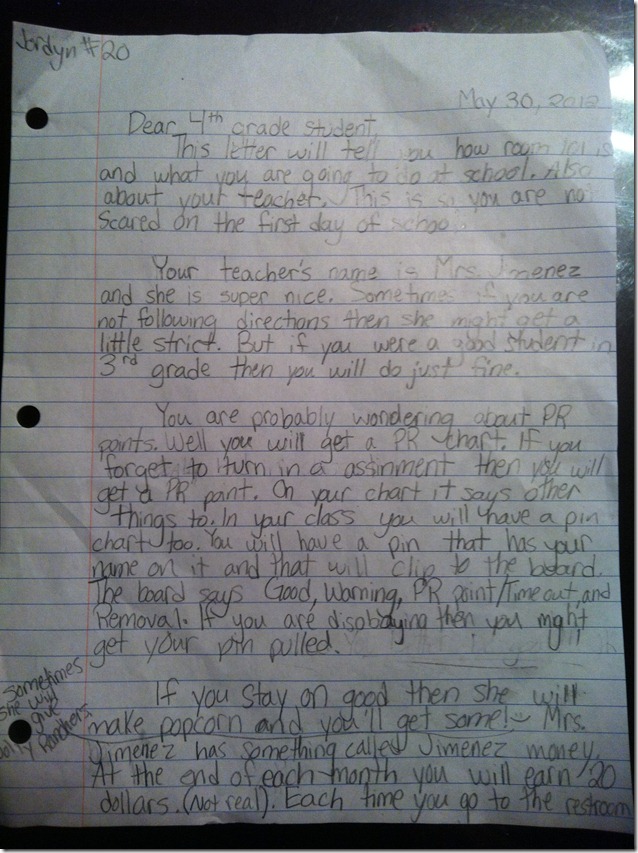 Jordyn #20
May 30, 2012
Dear 4th grade student,
This letter will tell you how room 101 is
and what you are going to do at school. Also
about your teacher. This is so you are not
Scared on the first day of school.
Your teacher's name is Mrs. Jimenez
and she is super nice. Sometimes if you are
not following directions then she might get a
little strict. But if you were a good student in
3rd grade then you will do just fine.
You are probably wondering about PR
points. Well you will get a PR chart. If you
forget to turn in a assinment then you will
get a PR point. On your chart it says other
things to. In your class you will have a pin
chart too. You will have a pin that has your
name on it and that will clip to the board.
The board says Good, Warning, PR point/Timeout, and
Removal. If you are disobaying then you might
get your pin pulled.
If you stay on good then she will
make popcorn and you'll get some! Mrs.
Jimenez has something called Jimenez money.
At the end of each month you will earn 20
dollars. (Not real). Each time you go to the restroom
sometimes
she will
give
Jolly Ranchers